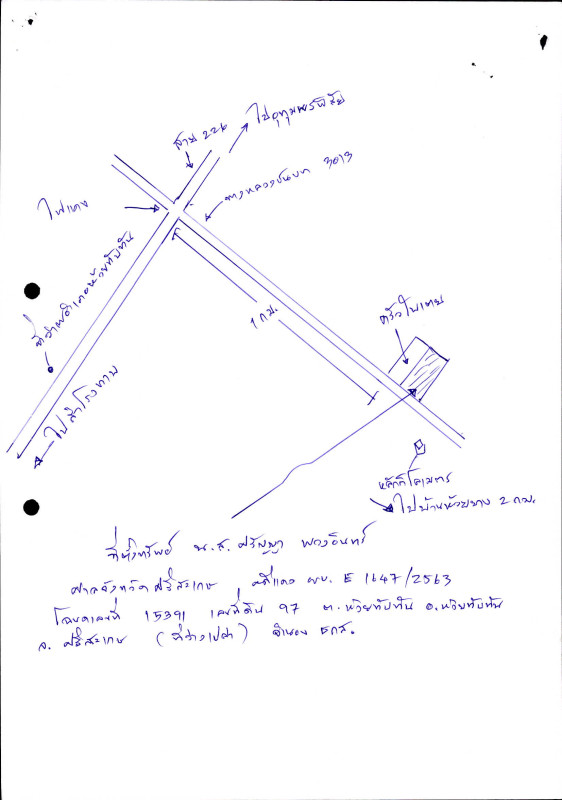 ไปอุทุมพรพิสัย
สาย 226
ทางหลวงชนบท 3013
ไฟแดง
ที่ว่าการอำเภอห้วยทับทัน
1 กม.
ครัวใบเตย
ไปสำโรงทาบ
หลักกิโลเมตร
ไปบ้านห้วยยาง 2 กม.
ที่ตั้งทรัพย์ น.ส. ศรัญญา พวงอินทร์
ศาลจังหวัดศรีสะเกษ คดีแดง ผบ. E 1647/2563
โฉนดเลขที่ 15391 เลขที่ดิน 97 ต.ห้วยทับทัน อ.ห้วยทับทัน
จ. ศรีสะเกษ (ที่ว่างเปล่า) จำนอง ธกส.